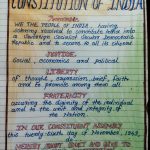 CONSTITUTION OF INDIA
Preamble
WE THE PEOPLE OF INDIA, having
solemnly resolved to constitute India into
a Sovereign Socialist Secular Democratic
Republic and to secure to all its citizens
JUSTICE,
Social, economic and political
LIBERTY
of thought, expression, belief, faith
and to promote among them all
FRATERNITY
assuring the dignity of the
and the unit and integrity of
the Nation
IN OUR CONSTITUENT ASSEMBLY
this day of November, 1949,
do
HEREBY ADOPT, ENACT AND GIVE TO